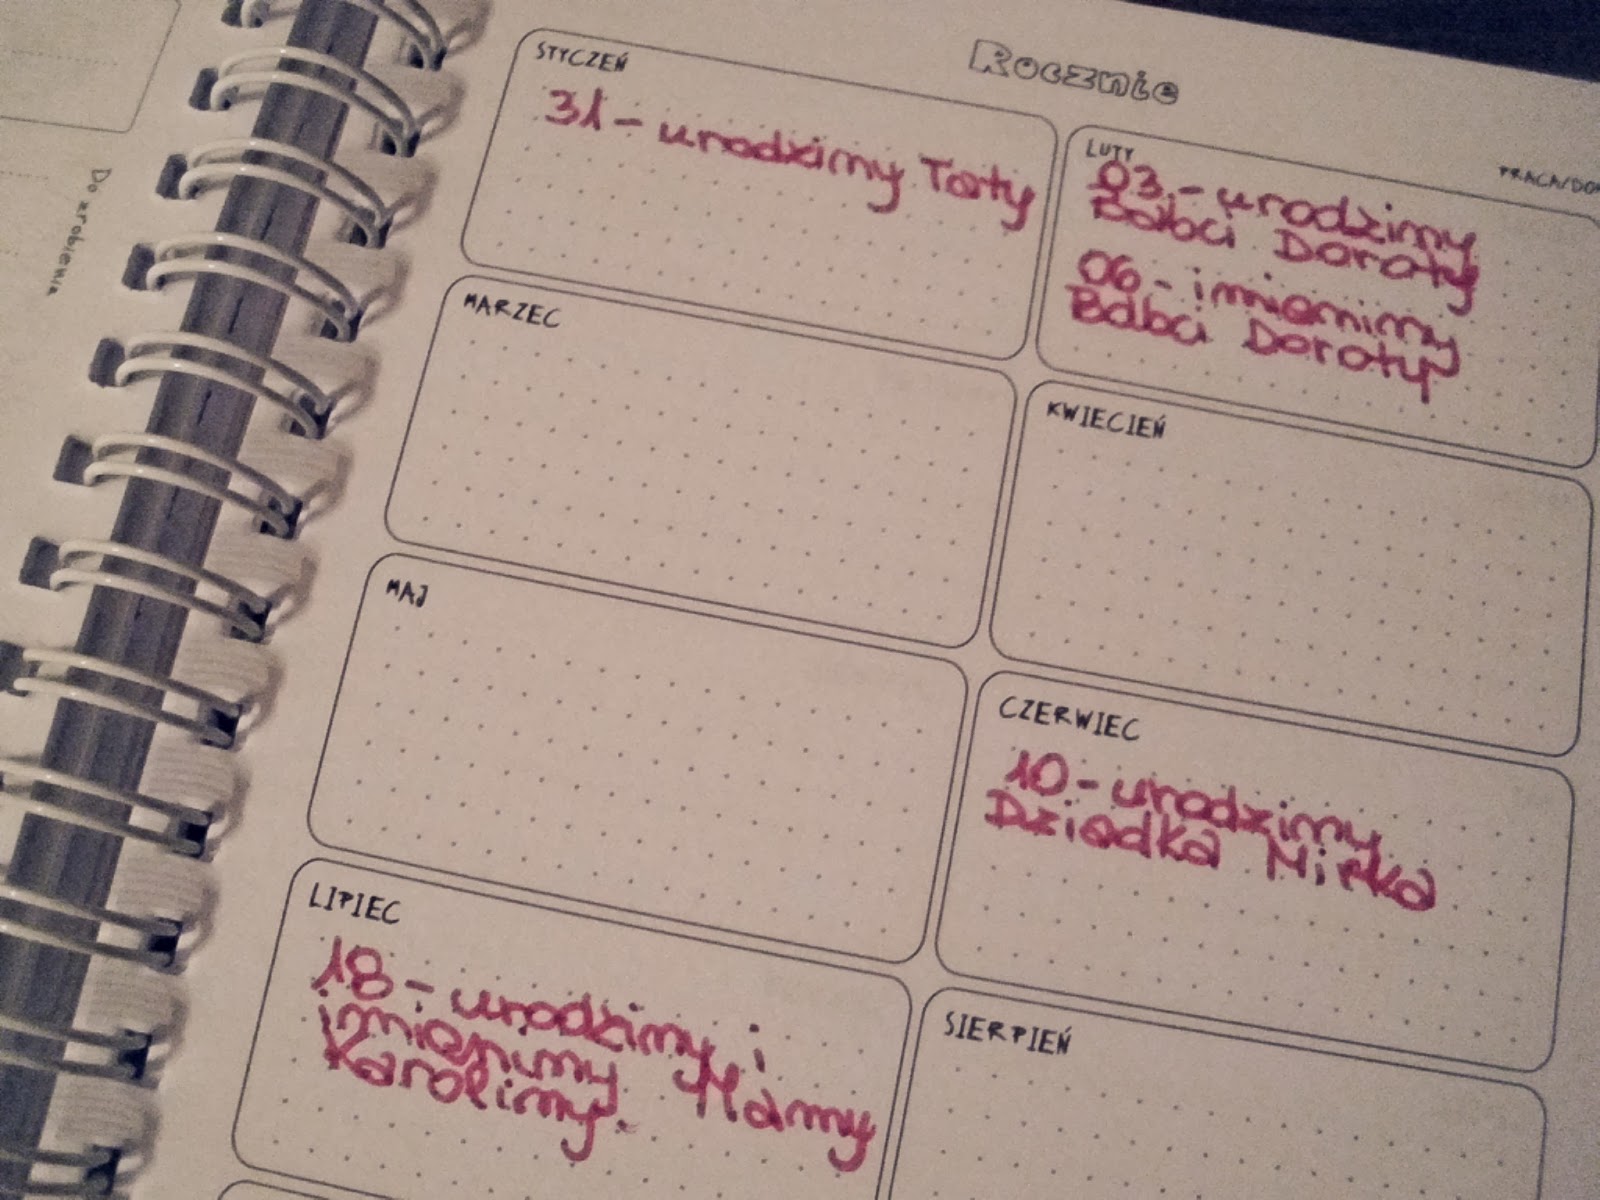 Do zrobienia
Rocznie
PRACA/DOM
STYCZEŃ
31 - urodziny Taty
LUTY
03 - urodziny
Babci Doroty
06 - imieniny
Babci Doroty
MARZEC
KWIECIEŃ
MAJ
CZERWIEC
10 - urodziny
Dziadka Mirka
LIPIEC
18 - urodziny i
imieniny Mamy
Karoliny.
SIERPIEŃ